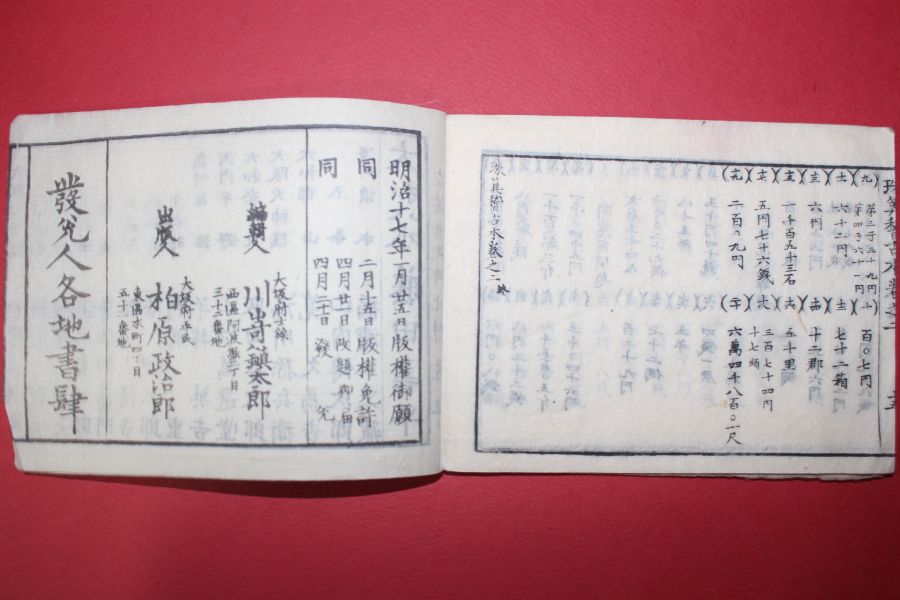 珠算稽古本巻之二
(九) 第三千五十九円 第四千六十一円
(十) 百〇七円
(十一) 六十二円
(十二) 七十二箱
(十三) 六円
(十四) 十二郡
(十五) 千百五十三石
(十六) 五十里
(十七) 五円七十六銭
(十八) 三百七十四円 十七頭
(十九) 二百〇九円
(二十) 六萬四千八百〇一尺
珠算稽古本巻之二終
明治十七年一月廿五日版權御願
同 二月十五日版權免許
四月廿一日改題御届
同 四月三十日發兌
編輯人
大坂府士族
西區阿波座二丁目
三十三番地
川嵜興太郎
出版人
大坂府平民
東區本町四丁目
五十一番地
柏原政治郎
發兌人各地書肆